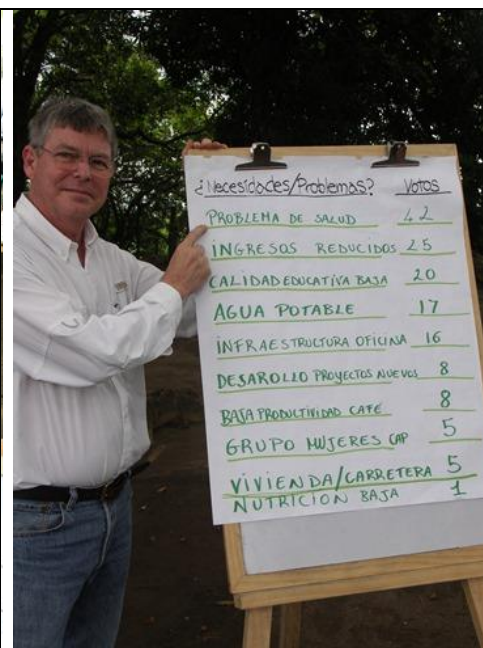 ¿Necesidades/Problemas? Votos
PROBLEMA DE SALUD 42
INGRESOS REDUCIDOS 25
CALIDAD EDUCATIVA BAJA 20
AGUA POTABLE 17
INFRAESTRUCTURA OFICINA 16
DESAROLLO PROYECTOS NUEVOS 8
BAJA PRODUCTIVIDAD CAFE 8
GRUPO MUJERES CAP 5
VIVIENDA/CARRETERA 5
NUTRICION BAJA 1